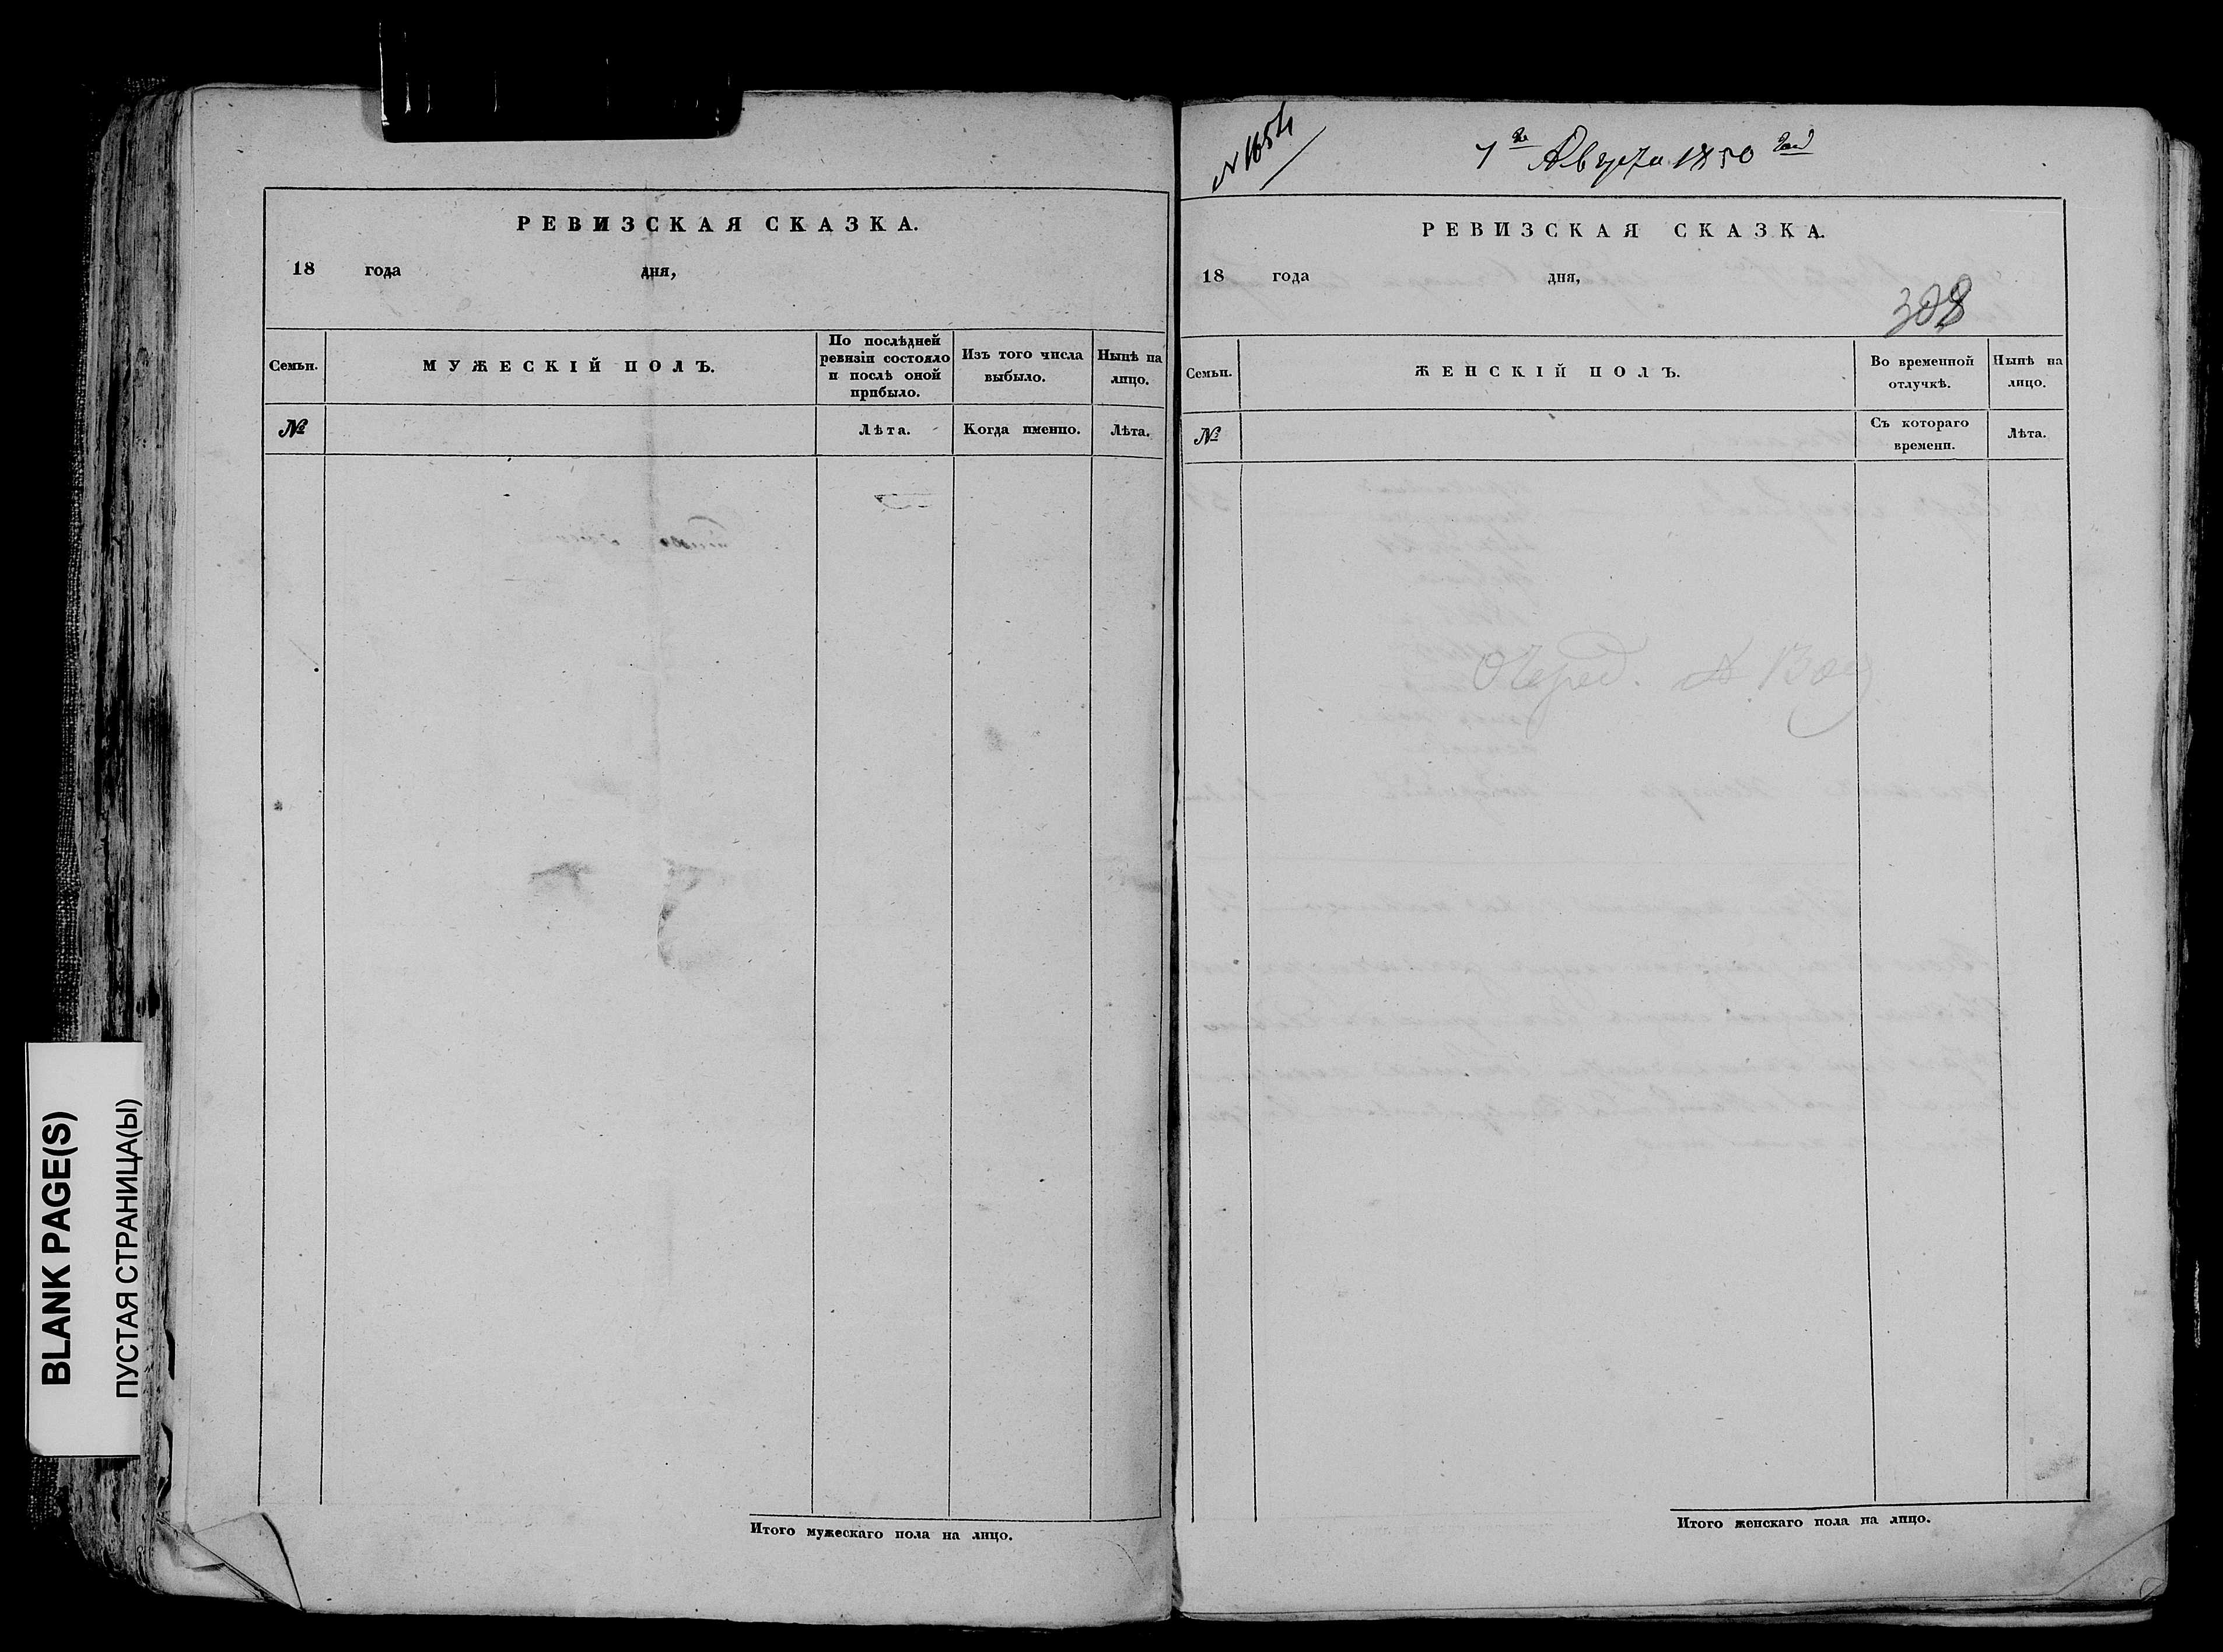 РЕВИЗСКАЯ СКАЗКА.
18 года дня,
Семьи.
МУЖЕСКІЙ ПОЛЪ.
По послѣдней
ревизіи состояло
и послѣ оной
прибыло.
Изъ того числа
выбыло.
Нынѣ на
лицо.
№
Лѣта.
Когда именно.
Лѣта.
Итого мужескаго пола на лицо.
BLANK PAGE(S)
ПУСТАЯ СТРАНИЦА(Ы)
N 1654
7го Августа 1850 года
РЕВИЗСКАЯ СКАЗКА.
18 года дня,
308
Семьи.
ЖЕНСКІЙ ПОЛЪ.
Во временной
отлучкѣ.
Нынѣ на
лицо.
№
Съ котораго
времени.
Лѣта.
Итого женскаго пола на лицо.